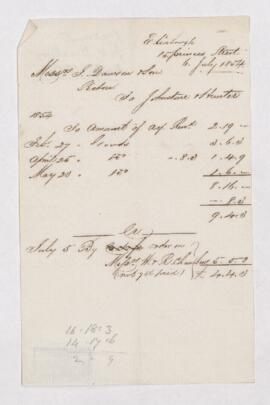 Edinburgh
15 Princes Street
6 July 1854
Messrs J. Dawson & Son
To Johnstone & Hunter
1854
To Amount of a/c Rend 2.19.-
Feby 27 " Goods 3.6.3
April 26 " Do -.8.3 1.4.9
May 20 " Do 1.6.-
8.16.-
-.8.3
9.4.3
Cr
July 5 By order on
Messrs W & R 5.0.0
£4.4.3
16 - 18
14
2 9